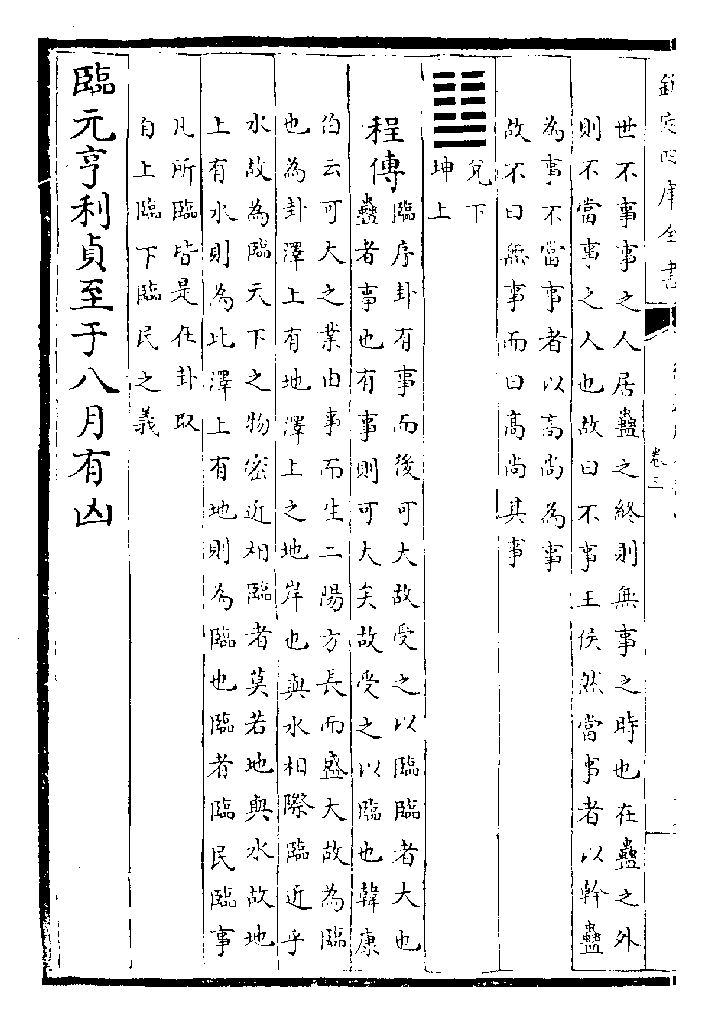 欽定四庫全書
卷三
世不事事之人居蠱之終則無事之時也在蠱之外
則不當事之人也故曰不事王侯然當事者以幹蠱
為事不當事者以高尚為事
故不曰無事而曰高尚其事
兌下
坤上
程傳
臨序卦有事而後可大故受之以臨臨者大也
蠱者事也有事則可大矣故受之以臨也韓康
伯云可大之業由事而生二陽方長而盛大故為臨
也為卦澤上有地澤上之地岸也與水相際臨近乎
水故為臨天下之物密近相臨者莫若地與水故地
上有水則為比澤上有地則為臨也臨者臨民臨事
凡所臨皆是在卦取
自上臨下臨民之義
臨元亨利貞至于八月有凶